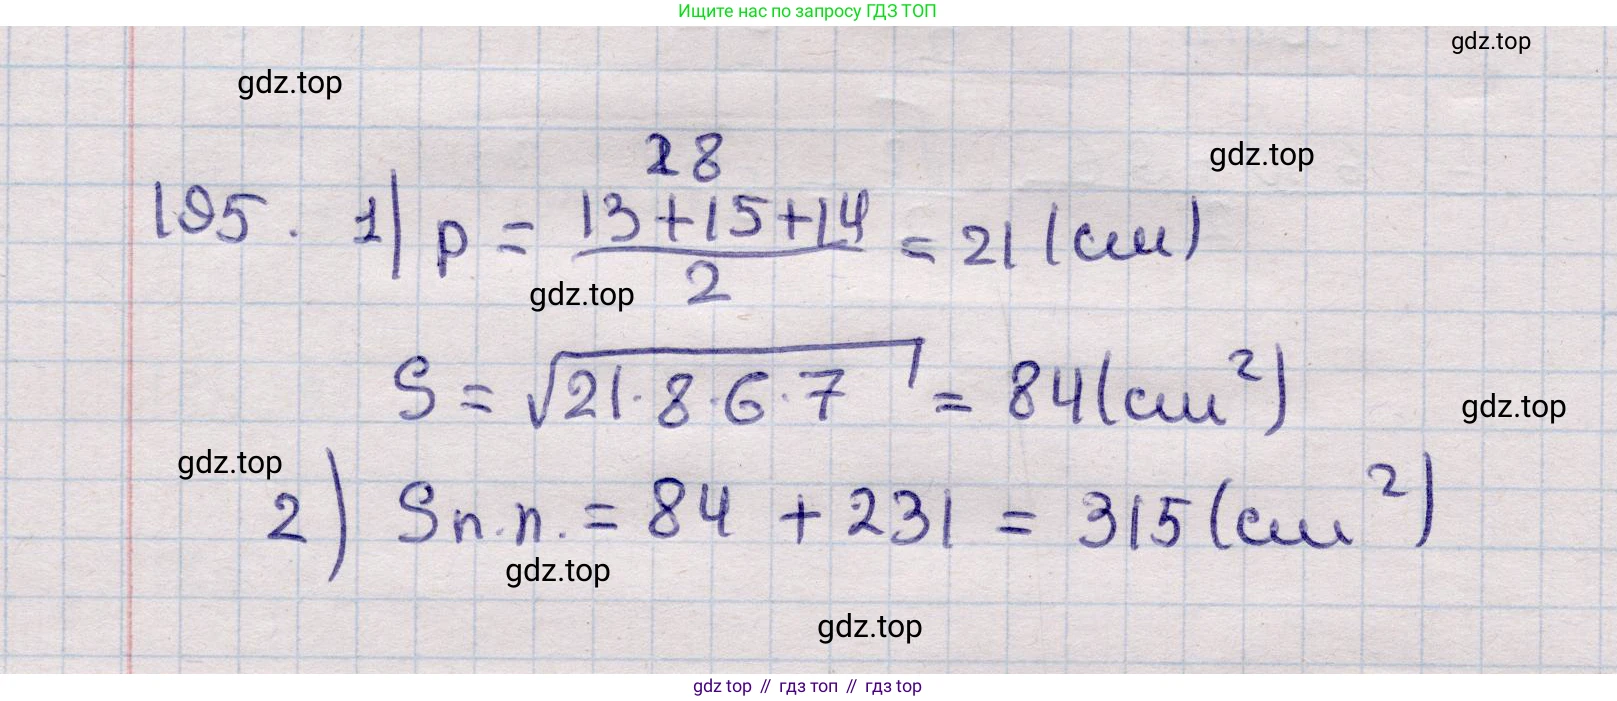 Ищите нас по запросу ГДЗ ТОП
gdz.top
gdz.top
28
gdz.top
195. 1) p = 13+15+14 / 2 = 21 (см)
gdz.top
S = √21·8·6·7 = 84 (см²)
gdz.top
gdz.top
2) Sп.п. = 84 + 231 = 315 (см²)
gdz.top
gdz.top
gdz top // гдз топ // гдз top